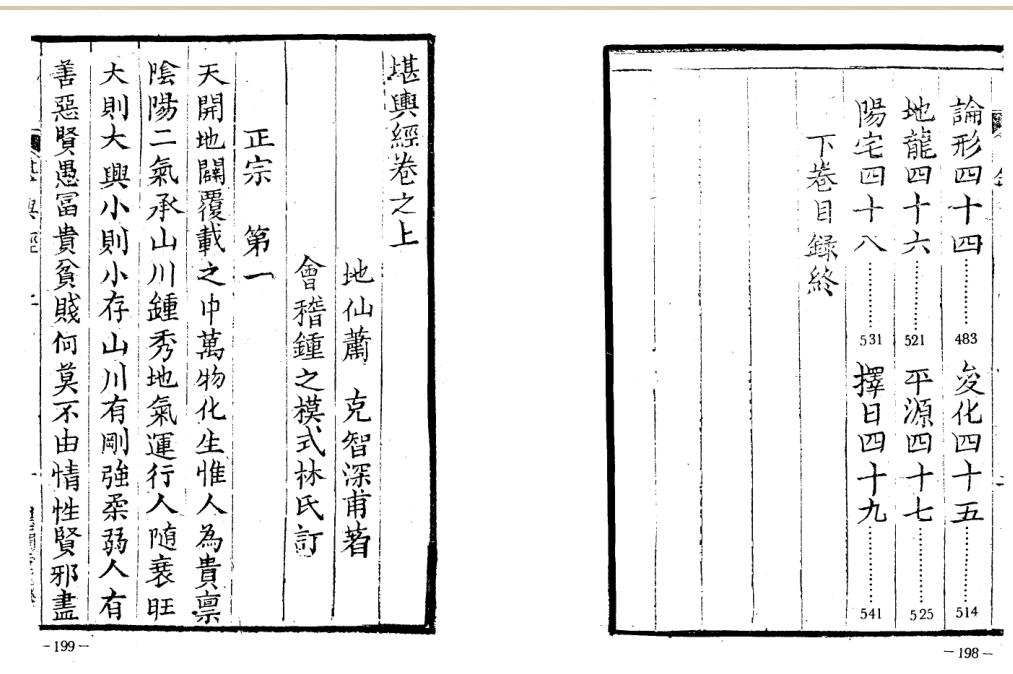 論形四十四………483 变化四十五………514
地龍四十六………521 平源四十七………525
陽宅四十八………531 擇日四十九………541
下卷目録終
－198－
堪輿經卷之上
地仙蕭 克智深甫著
會稽鍾之模式林氏訂
正宗 第一
天開地闢覆載之中萬物化生惟人為貴禀
陰陽二氣承山川鍾秀地氣運行人随衰旺
大則大興小則小存山川有剛強柔弱人有
善惡賢愚冨貴貧賤何莫不由情性賢邪盡
堪輿經
上
－199－